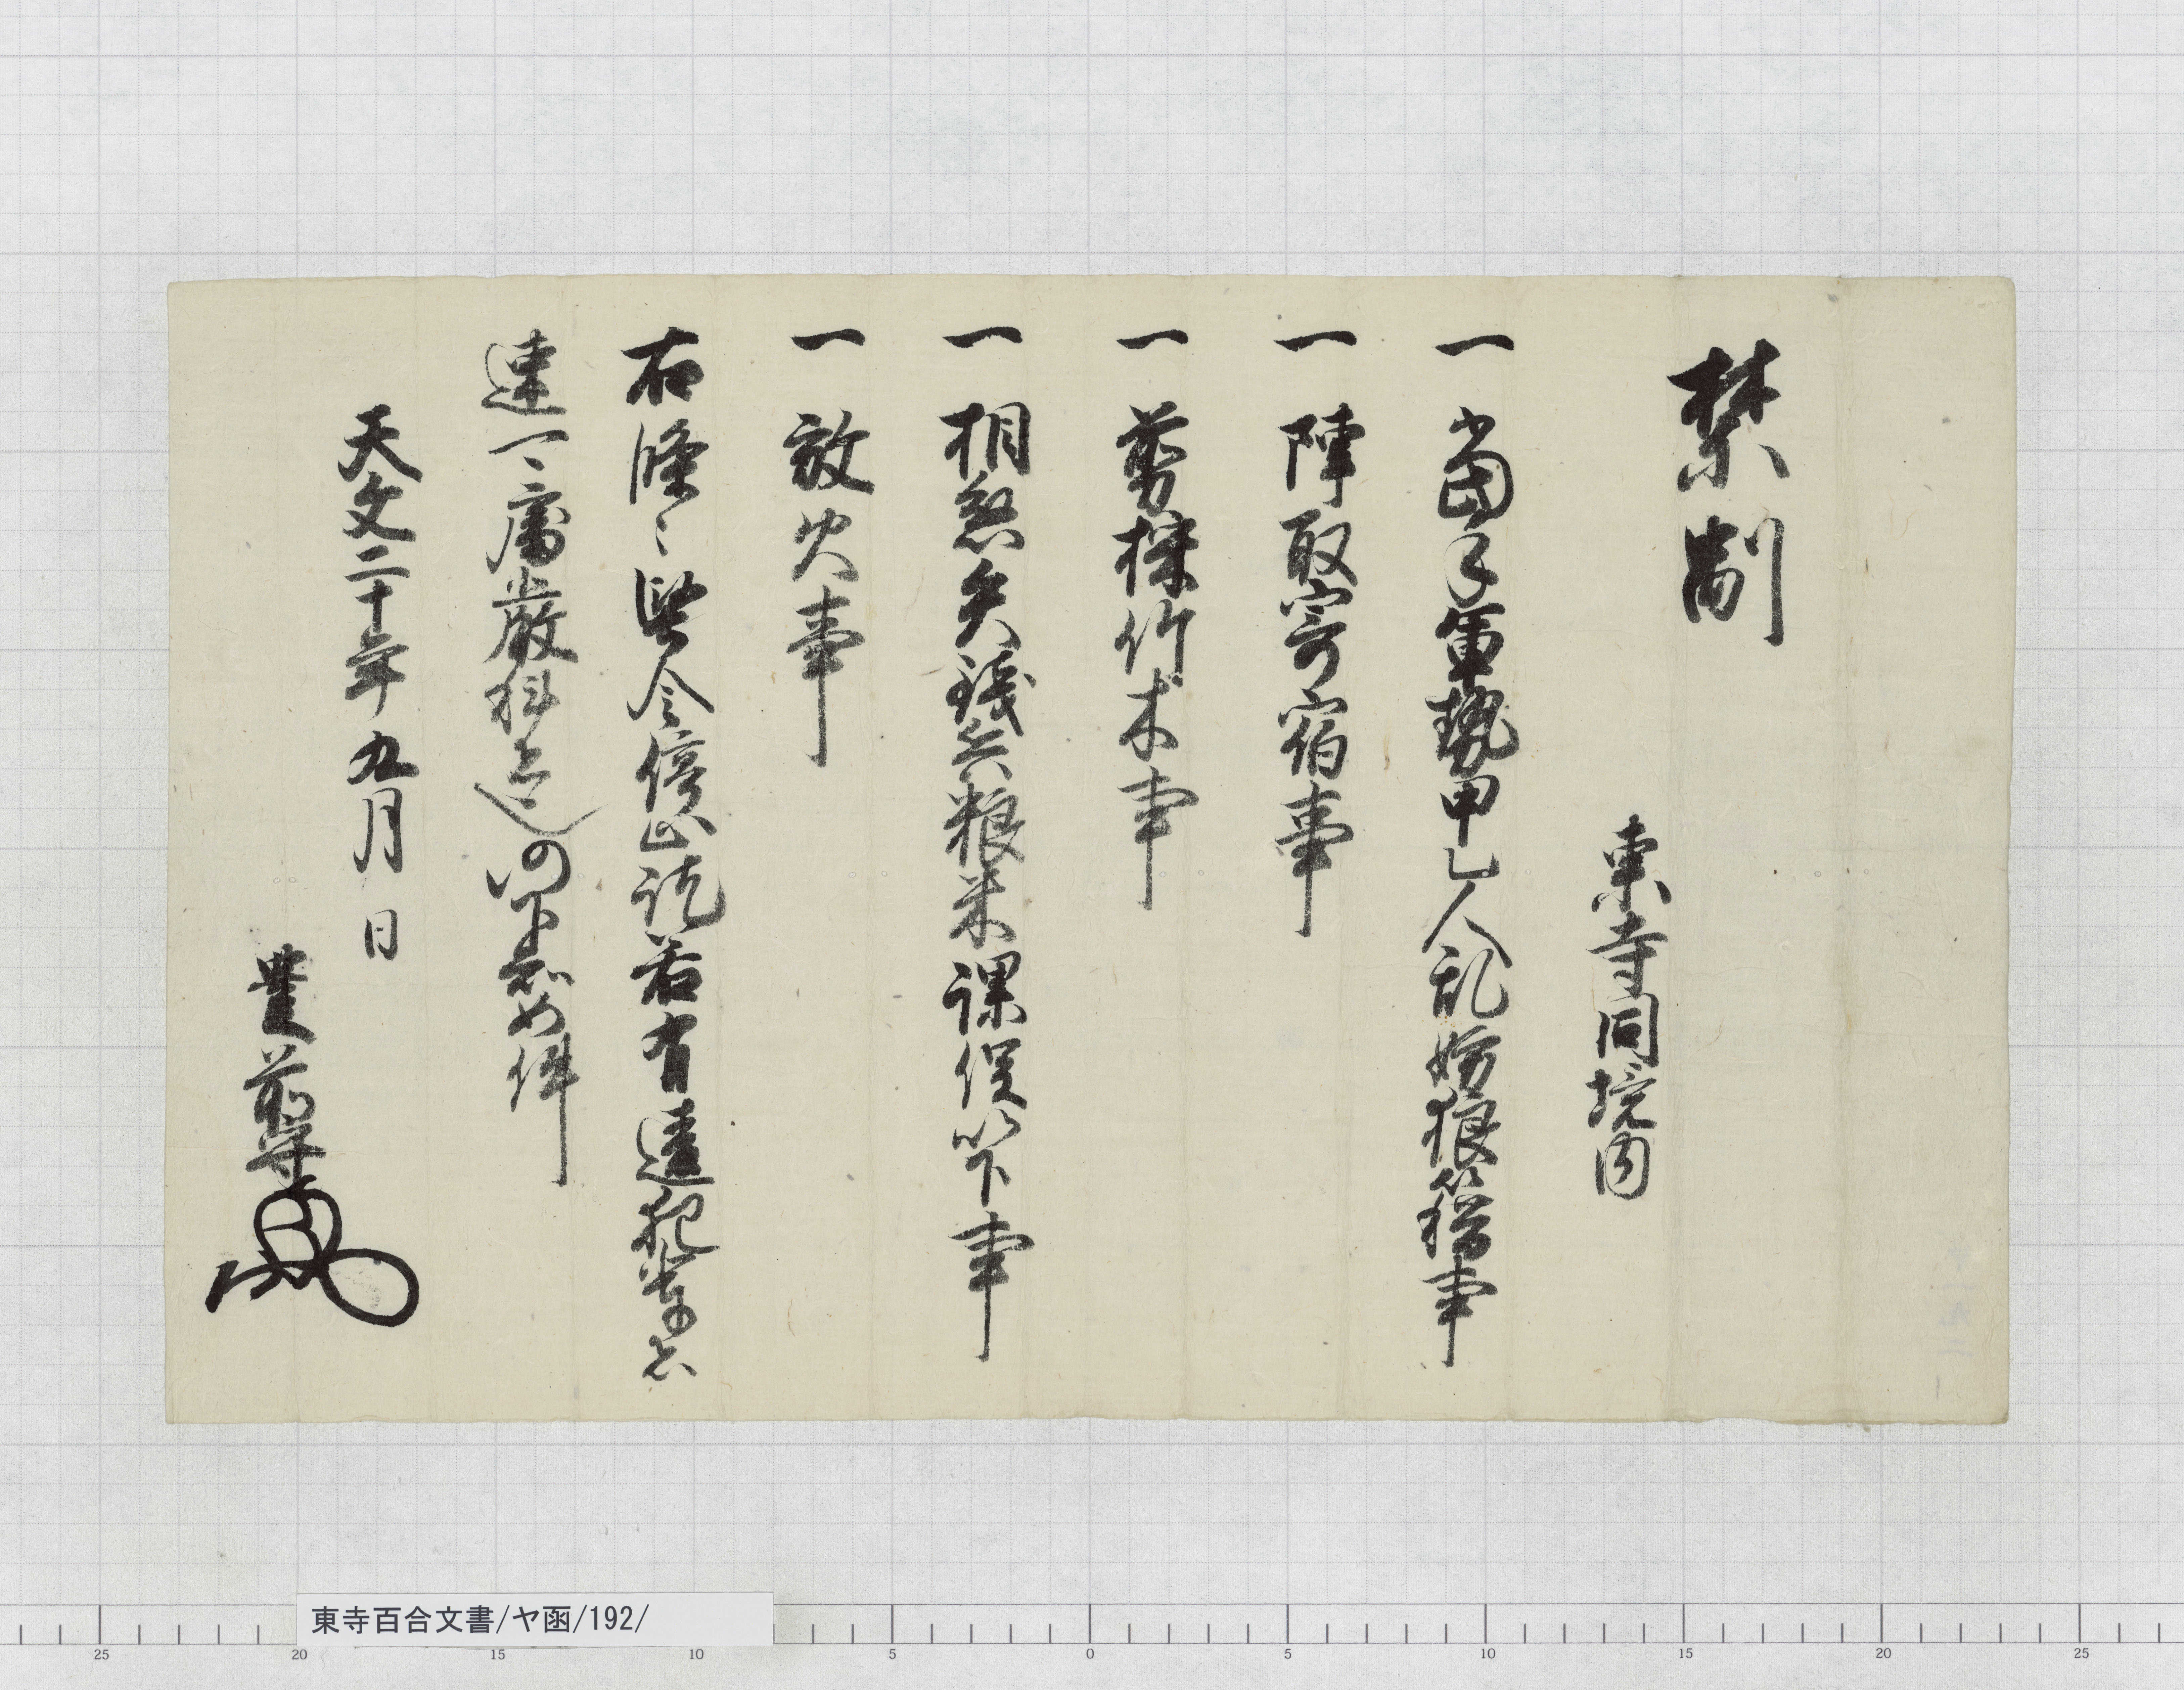 禁制
東寺同境内
一 当手軍勢甲乙人乱妨狼籍事
一 陣取寄宿事
一 剪採竹木事
一 相懸矢銭兵粮米課役以下事
一 放火事
右條々堅令停止訖若有違犯輩者
速可處厳科者也仍下知如件
天文二十年九月 日
豊前守
東寺百合文書/ヤ函/192/
25 20 15 10 5 0 5 10 15 20 25